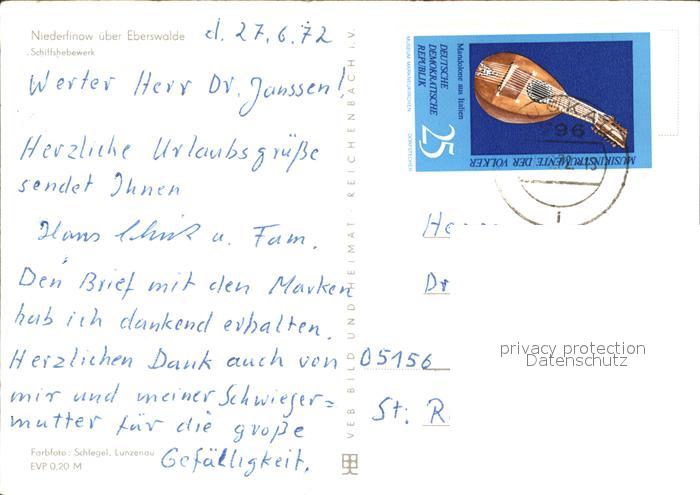 Niederfinow über Eberswalde
Schiffshebewerk
d. 27.6.72
Werter Herr Dr. Janssen!
Herzliche Urlaubsgrüße
sendet Ihnen
Hans u. Fam.
Den Brief mit den Marken
hab ich dankend erhalten.
Herzlichen Dank auch von
mir und meiner Schwieger=
mutter für die große
Gefälligkeit.
Farbfoto: Schlegel, Lunzenau
EVP 0,20 M
VEB BILD UND HEIMAT REICHENBACH i.V.
MUSEUM MARKNEUKIRCHEN
DORFSTECHER
DEUTSCHE
DEMOKRATISCHE
REPUBLIK
25
Mandolone aus Italien
MUSIKINSTRUMENTE DER VÖLKER
96
He
Dr
05156
St: R
privacy protection
Datenschutz